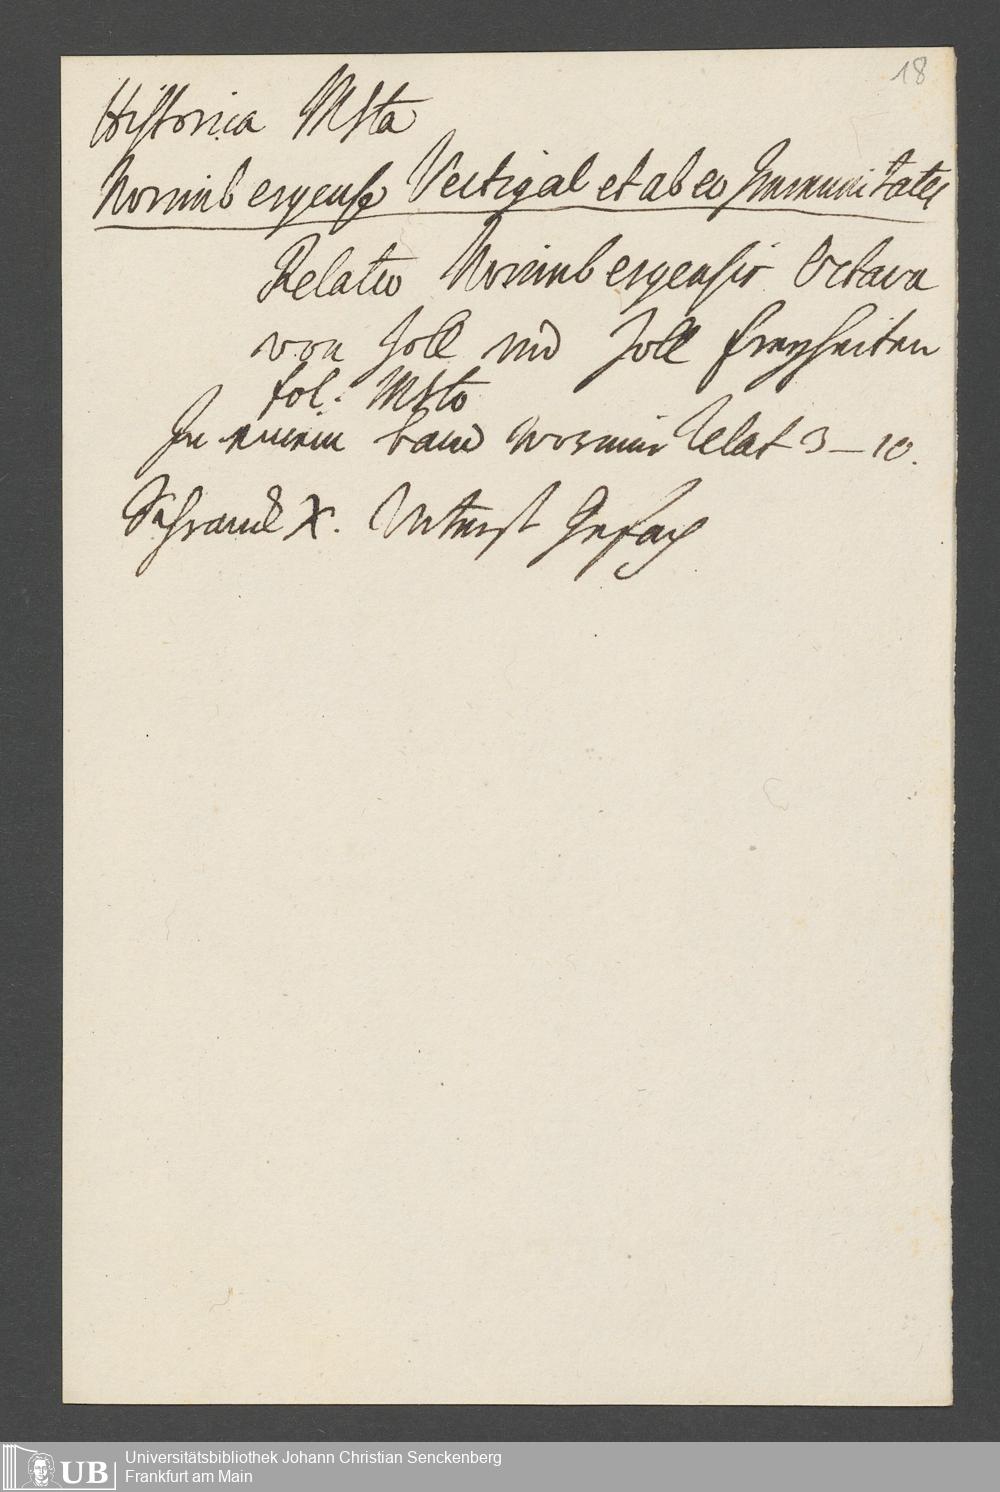 18
Historica Msta
Norimbergense Vectigal et ab eo Immunitates
Relatio Norimbergensis Octava
von Zoll und Zoll freyheiten
fol. Msto
In einem band worinnen Relat 3–10.
Schranck X. Unterst Gefach
UB
Universitätsbibliothek Johann Christian Senckenberg
Frankfurt am Main